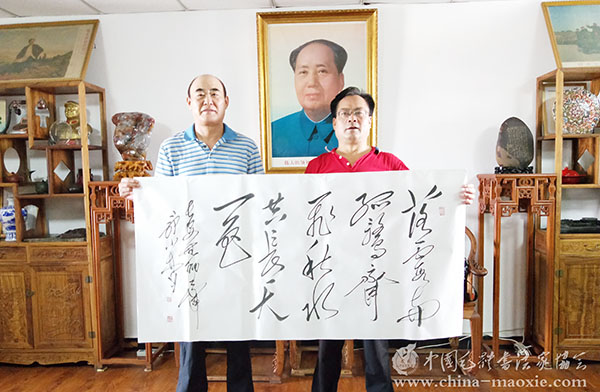 落霞與
孤鶩齊
飛秋水
共長天
一色
中国毛体书法家协会
www.china-maoxie.com